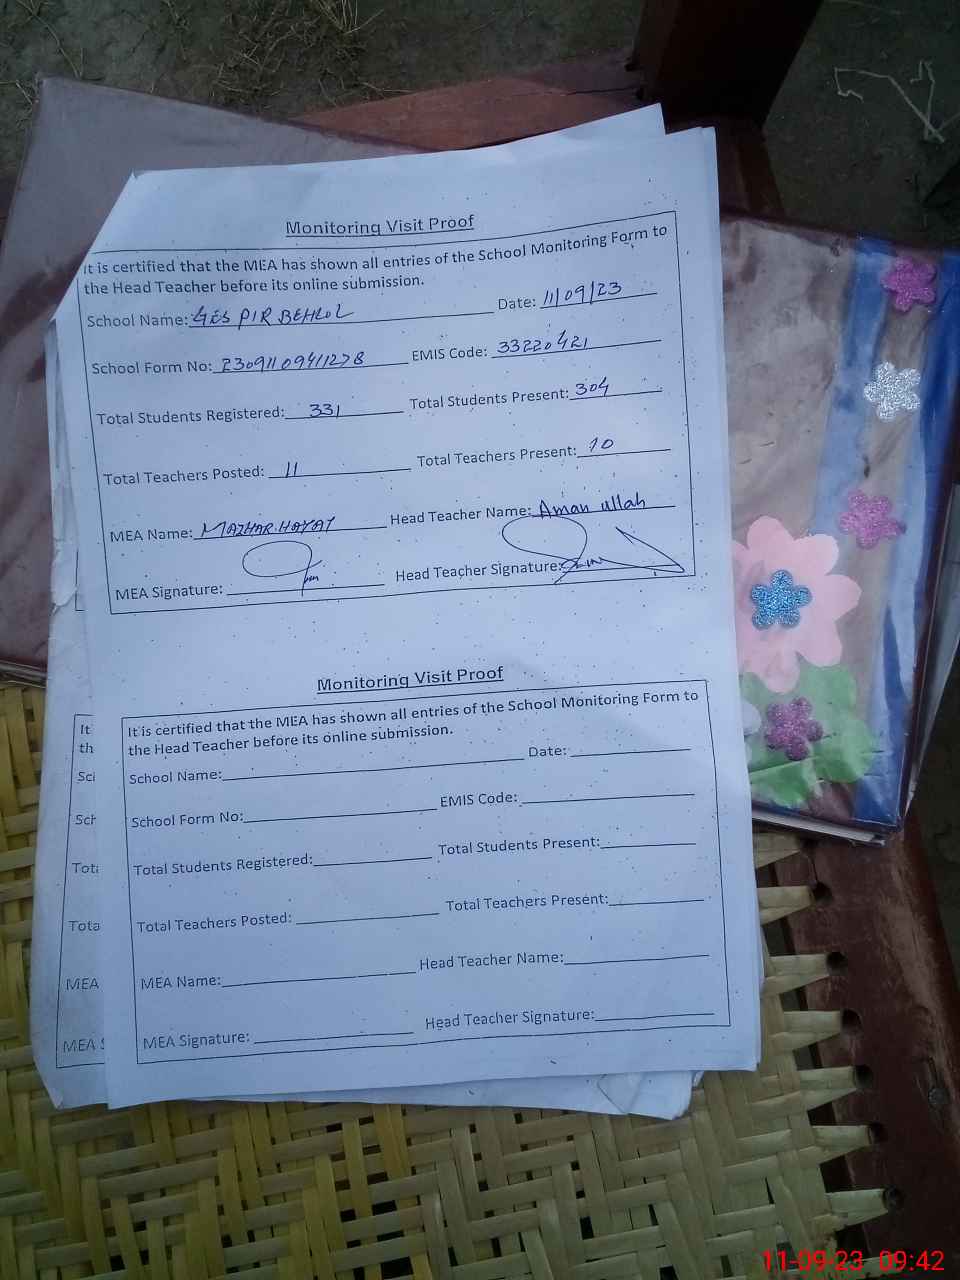 Monitoring Visit Proof
It is certified that the MEA has shown all entries of the School Monitoring Form to
the Head Teacher before its online submission.
School Name: GES PIR BEHLOL Date: 11/09/23
School Form No: 23091109411278 EMIS Code: 33220421
Total Students Registered: 331 Total Students Present: 304
Total Teachers Posted: 11 Total Teachers Present: 10
MEA Name: MAZHAR HAYAT Head Teacher Name: Aman ullah
MEA Signature: Head Teacher Signature:
Monitoring Visit Proof
It is certified that the MEA has shown all entries of the School Monitoring Form to
the Head Teacher before its online submission.
School Name: Date:
School Form No: EMIS Code:
Total Students Registered: Total Students Present:
Total Teachers Posted: Total Teachers Present:
MEA Name: Head Teacher Name:
MEA Signature: Head Teacher Signature:
It
th
Sch
Tota
Tota
MEA
MEA S
11-09-23 09:42